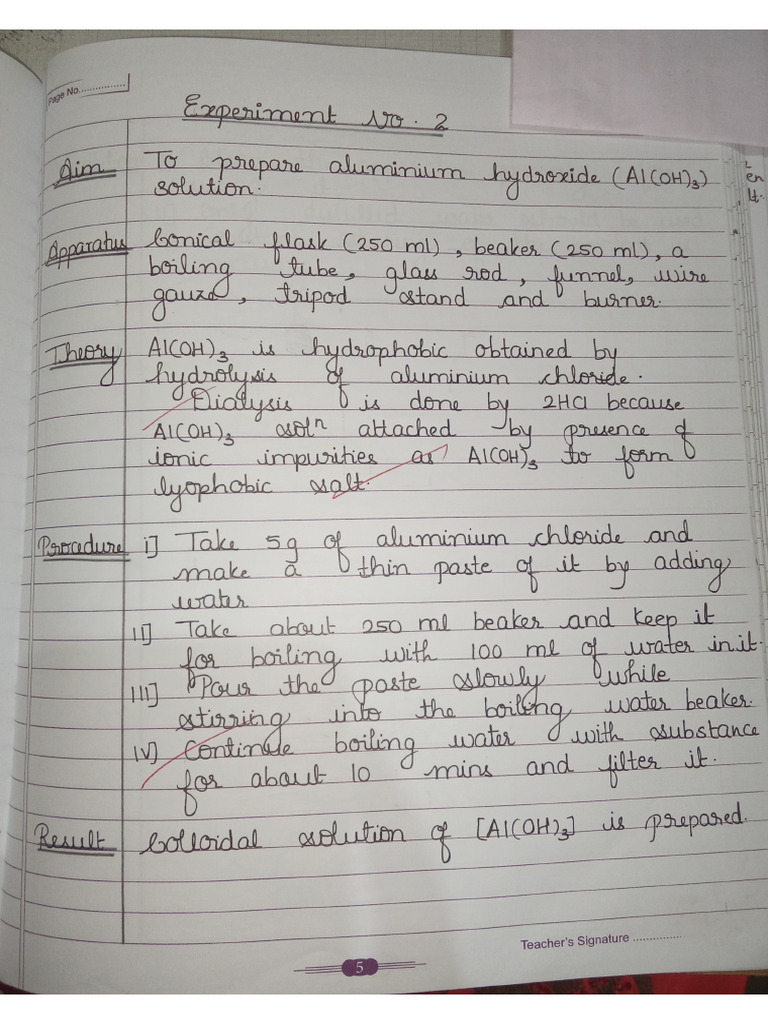 Page No................
Experiment No. 2
Aim To prepare aluminium hydroxide (Al(OH)3)
solution.
Apparatus Conical flask (250 ml), beaker (250 ml), a
boiling tube, glass rod, funnel, wire
gauze, tripod stand and burner.
Theory Al(OH)3 is hydrophobic obtained by
hydrolysis of aluminium chloride.
Dialysis is done by 2HCl because
Al(OH)3 soln attached by presence of
ionic impurities as Al(OH)3 to form
lyophobic salt.
Procedure i] Take 5g of aluminium chloride and
make a thin paste of it by adding
water
II] Take about 250 ml beaker and keep it
for boiling with 100 ml of water in it.
III] Pour the paste slowly while
stirring into the boiling water beaker.
IV] Continue boiling water with substance
for about 10 mins and filter it.
Result Colloidal solution of [Al(OH)3] is prepared.
Teacher's Signature ................
5
en
lt.